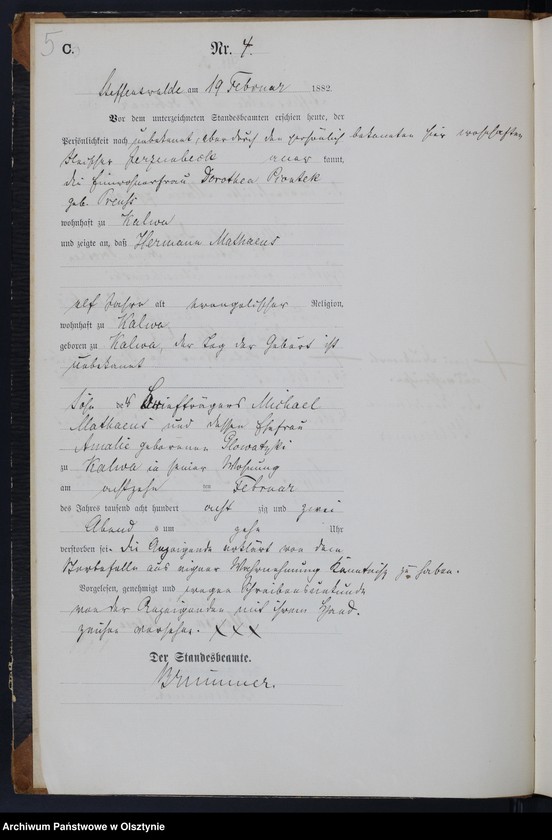 5
C.
Nr. 4.
Steffenswalde am 19 Februar 1882
Vor dem unterzeichneten Standesbeamten erschien heute, der
Persönlichkeit nach unbekannt, aber durch den persönlich bekannten hier wohnhaften
Fleischer aner kannt,
die Einwohnerfrau Dorothea
geb. Preuß
wohnhaft zu Kalwa
und zeigte an, daß Hermann Mathaeus
elf Jahre alt evangelischer Religion,
wohnhaft zu Kalwa
geboren zu Kalwa, der Tag der Geburt ist
unbekannt
Sohn des Briefträgers Michael
Mathaeus und dessen Ehefrau
Amalie geborenen Glowatzki
zu Kalwa in seiner Wohnung
am achtzehn ten Februar
des Jahres tausend acht hundert acht zig und zwei
Abend s um zehn Uhr
verstorben sei. die Anzeigende erklärt von dem
Sterbefalle aus eigner Wahrnehmung Kenntniß zu haben.
Vorgelesen, genehmigt und wegen Schreibensunkunde
von der Anzeigenden mit ihrem Hand-
zeichen versehen. XXX
Der Standesbeamte.
Brummer.
Archiwum Państwowe w Olsztynie